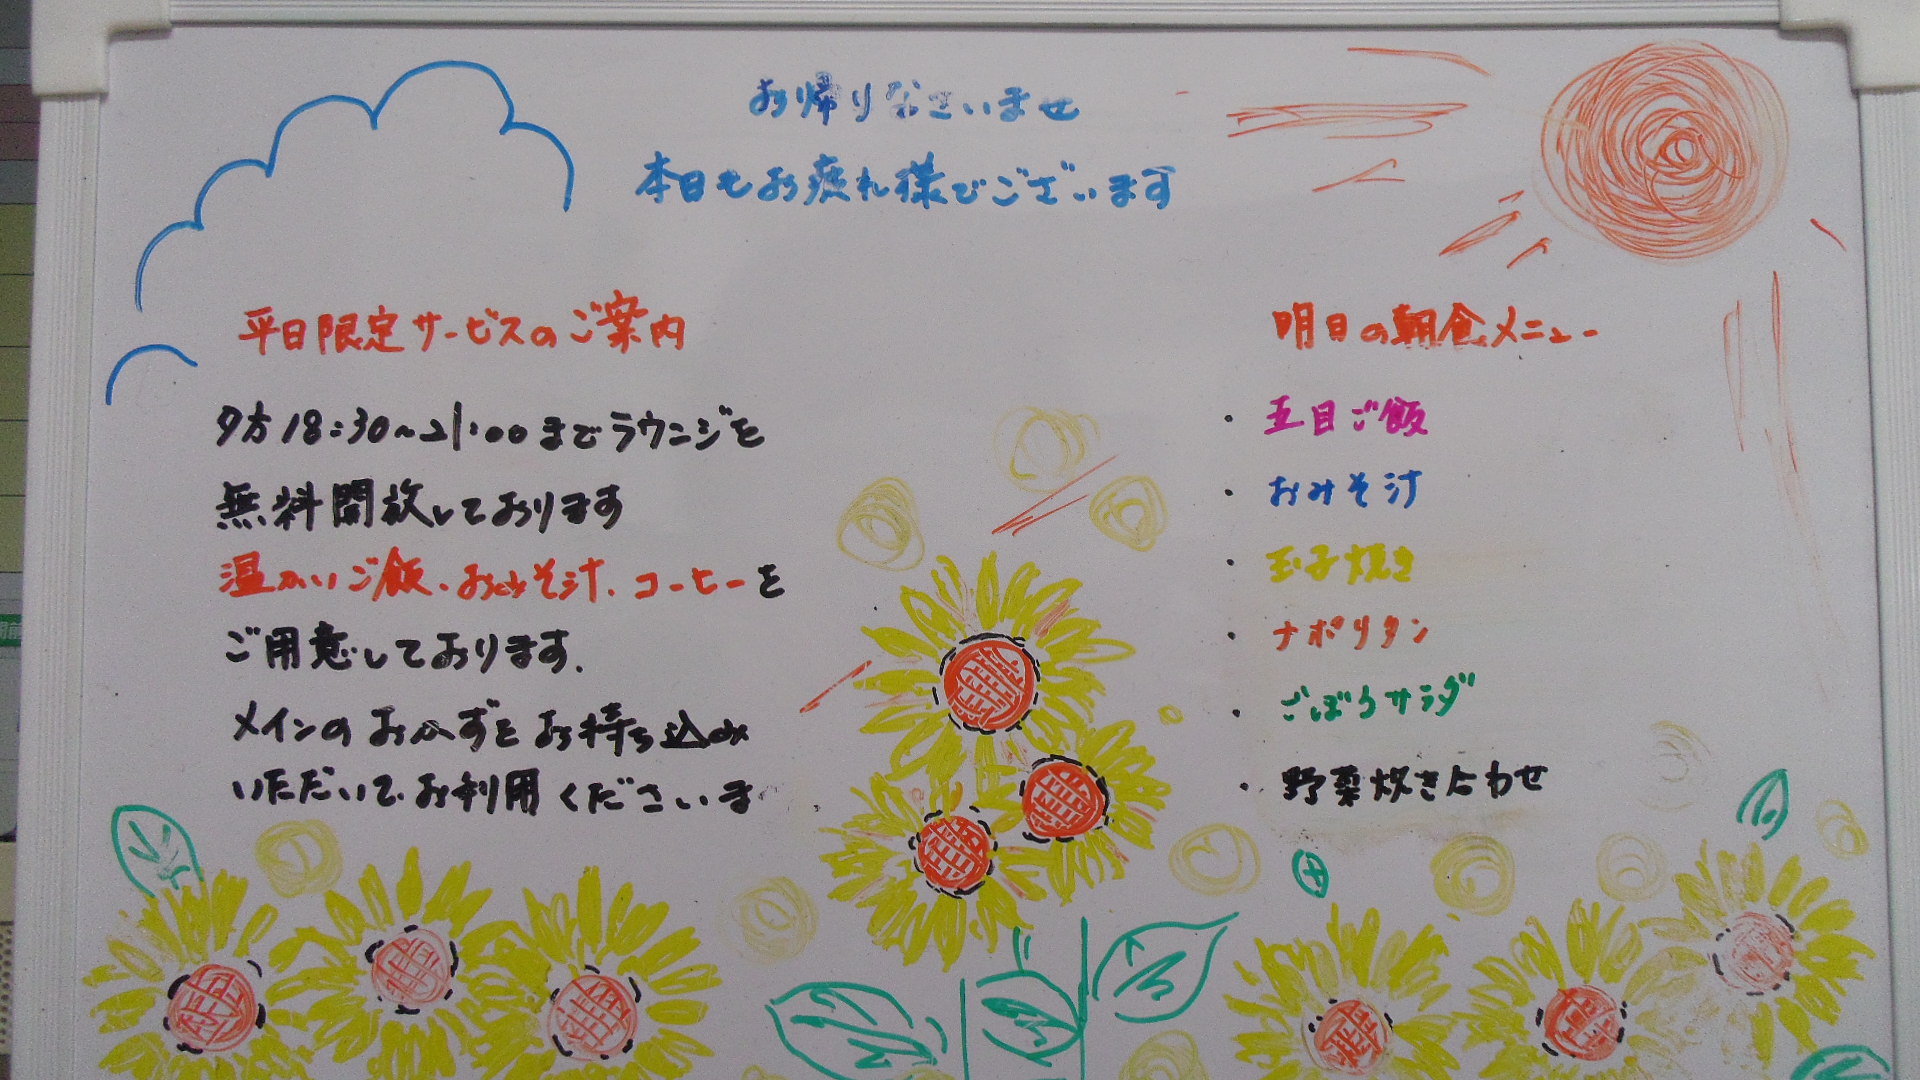 お帰りなさいませ
本日もお疲れ様でございます
平日限定サービスのご案内
夕方18:30~21:00までラウンジを
無料開放しております
温かいご飯、おみそ汁、コーヒーを
ご用意しております。
メインのおかずをお持ち込み
いただいて、お利用くださいま
明日の朝食メニュー
・五目ご飯
・おみそ汁
・玉子焼き
・ナポリタン
・ごぼうサラダ
・野菜炊き合わせ